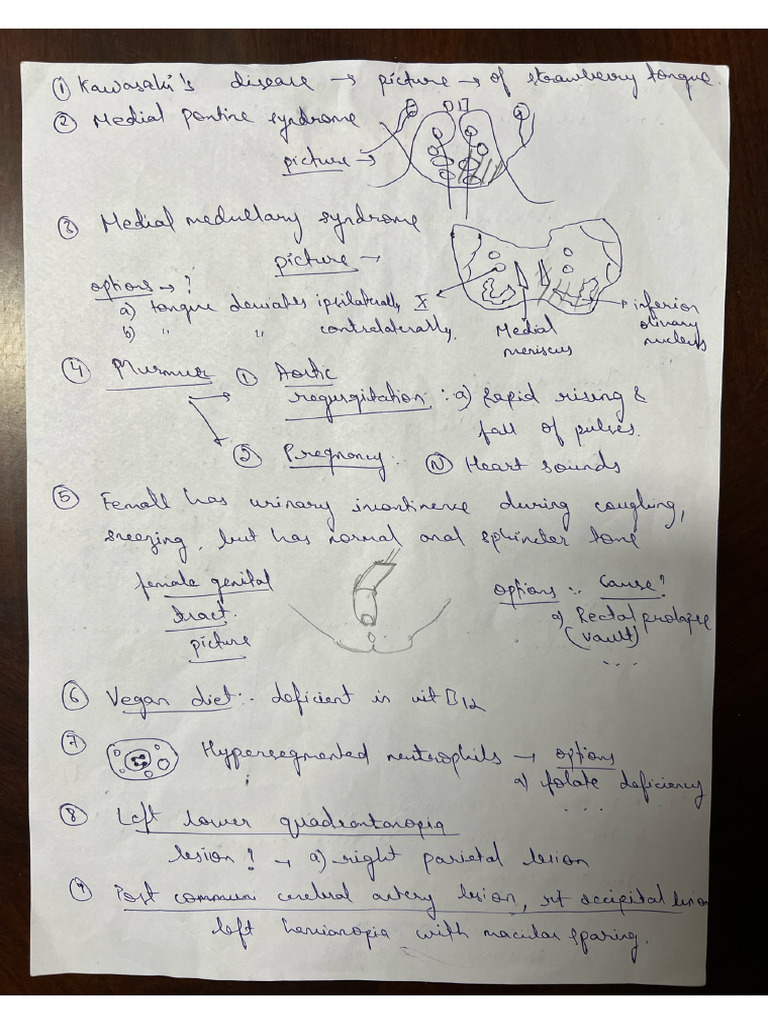 ① Kawasaki's disease → picture → of strawberry tongue.
② Medial pontine syndrome
picture →
③ Medial medullary syndrome
picture →
options → ?
a) tongue deviates ipsilaterally X
b) " " contralaterally.
Medial meniscus
inferior olivary nucleus
④ Murmur → ① Aortic
regurgitation :- a) Rapid rising &
fall of pulses.
② Pregnancy :- Ⓝ Heart sounds
⑤ Female has urinary incontinence during coughing,
sneezing, but has normal anal sphincter tone
female genital
tract
picture
options :- Cause?
a) Rectal prolapse
(vault)
...
⑥ Vegan diet :- deficient in vit B12
⑦ Hypersegmented neutrophils → options
a) folate deficiency
...
⑧ Left lower quadrantanopia
lesion ? → a) right parietal lesion
⑨ Post communi cerebral artery lesion, rt occipital lesion
left hemianopia with macular sparing.